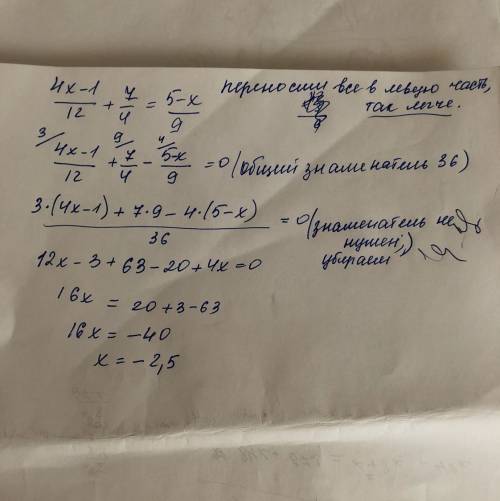 (4x-1)/12 + 7/4 = (5-x)/9 переносим все в левую часть,
так легче.
3/ (4x-1)/12 + 9/ 7/4 - 4/ (5-x)/9 = 0 (общий знаменатель 36)
(3·(4x-1) + 7·9 - 4·(5-x))/36 = 0 (знаменатель не
нужен,
убираем
12x - 3 + 63 - 20 + 4x = 0
16x = 20 + 3 - 63
16x = -40
x = -2,5